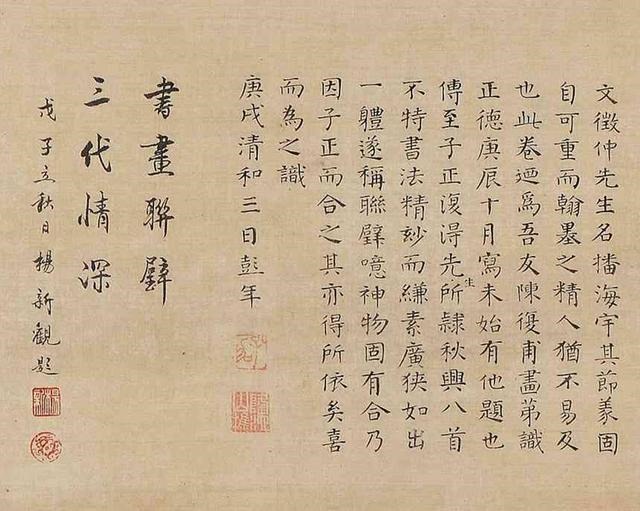 文徵仲先生名播海宇其節義固
自可重而翰墨之精人猶不易及
也此卷迺爲吾友陳復甫畫第識
正德庚辰十月寫未始有他題也
傳至子正復淂先生所隷秋興八首
不特書法精玅而縑素廣狹如出
一軆遂稱聯璧噫神物固有合乃
因子正而合之其亦得所依矣喜
而為之識
庚戌清和三日彭年
書畫聯璧
三代情深
戊子立秋日楊新觀題